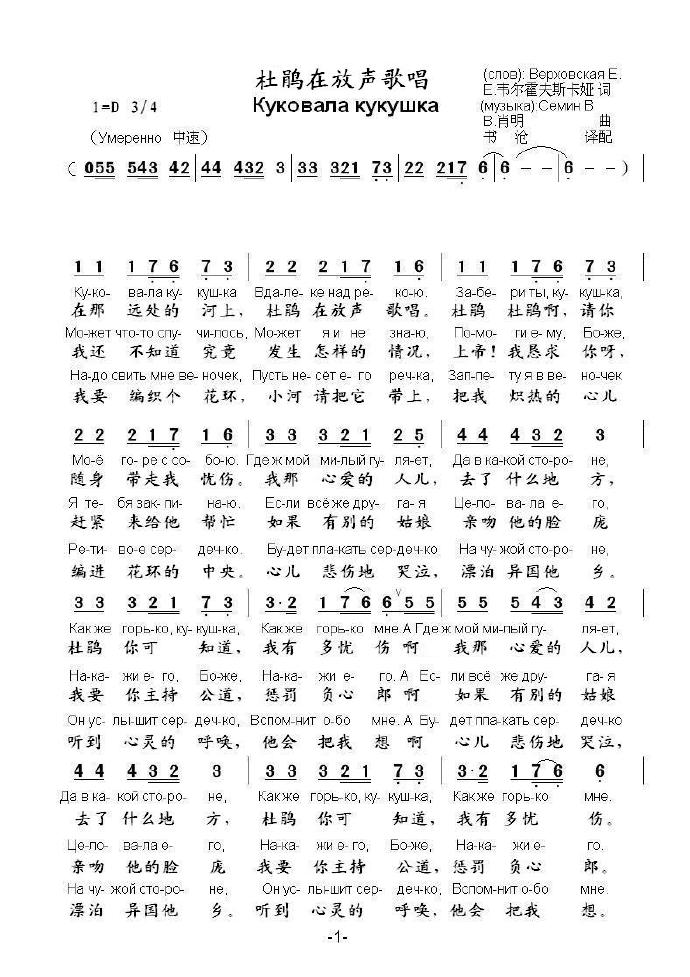 杜鹃在放声歌唱
(слов): Верховская Е.
Е.韦尔霍夫斯卡娅 词
1=D 3/4
Куковала кукушка
(музыка):Семин В
В.肖明 曲
(Умеренно 中速)
书 沧 译配
( 055 543 42 | 44 432 3 | 33 321 73 | 22 217 6 | 6 - - | 6 - - )
1 1 1 7 6 7 3 | 2 2 2 1 7 1 6 | 1 1 1 7 6 7 3 |
Ку-ко- ва-ла ку- куш-ка Вда-ле- ке над ре- ко-ю. За-бе- ри ты, ку- куш-ка,
在那 远处的 河上, 杜鹃 在放声 歌唱。 杜鹃 杜鹃啊, 请你
Мо-жет что-то слу- чи-лось, Мо-жет я и не зна-ю. По-мо- ги е-му, Бо-же,
我还 不知道 究竟 发生 怎样的 情况, 上帝! 我恳求 你呀,
На-до свить мне ве- но-чек, Пусть не-сет е- го реч-ка, Зап-ле- ту я в ве- но-чек
我要 编织个 花环, 小河 请把它 带上, 把我 炽热的 心儿
2 2 2 1 7 1 6 | 3 3 3 2 1 2 5 | 4 4 4 3 2 3 |
Мо-ё го- ре с со- бо-ю. Где ж мой ми-лый гу- ля-ет, Да в ка-кой сто-ро- не,
随身 带走我 忧伤。 我那 心爱的 人儿, 去了 什么地 方,
Я те- бя зак-ли- на-ю. Ес-ли всё же дру- га-я Це-ло- ва- ла е- го,
赶紧 来给他 帮忙 如果 有别的 姑娘 亲吻 他的脸 庞
Ре-ти- во-е сер- деч-ко. Бу-дет пла-кать сер-деч-ко На чу- жой сто-ро- не,
编进 花环的 中央。 心儿 悲伤地 哭泣, 漂泊 异国他 乡。
3 3 3 2 1 7 3 | 3·2 1 7 6 6 ∨ 5 5 | 5 5 5 4 3 4 2 |
Как же горь-ко, ку- куш-ка, Как же горь-ко мне. А Где ж мой ми-лый гу- ля-ет,
杜鹃 你可 知道, 我有 多忧 伤 啊 我那 心爱的 人儿,
На-ка- жи е- го, Бо-же, На-ка- жи е- го. А Ес- ли всё же дру- га-я
我要 你主持 公道, 惩罚 负心 郎 啊 如果 有别的 姑娘
Он ус- лы-шит сер- деч-ко, Вспом-нит о-бо мне. А Бу- дет пла-кать сер- деч-ко
听到 心灵的 呼唤, 他会 把我 想 啊 心儿 悲伤地 哭泣,
4 4 4 3 2 3 | 3 3 3 2 1 7 3 | 3·2 1 7 6 6 |
Да в ка- кой сто-ро- не, Как же горь-ко, ку- куш-ка, Как же горь-ко мне.
去了 什么地 方, 杜鹃 你可 知道, 我有 多忧 伤。
Це-ло- ва-ла е- го, На-ка- жи е- го, Бо-же, На-ка- жи е- го.
亲吻 他的脸 庞 我要 你主持 公道, 惩罚 负心 郎。
На чу- жой сто-ро- не, Он ус- лы-шит сер- деч-ко, Вспом-нит о-бо мне
漂泊 异国他 乡。 听到 心灵的 呼唤, 他会 把我 想。
-1-